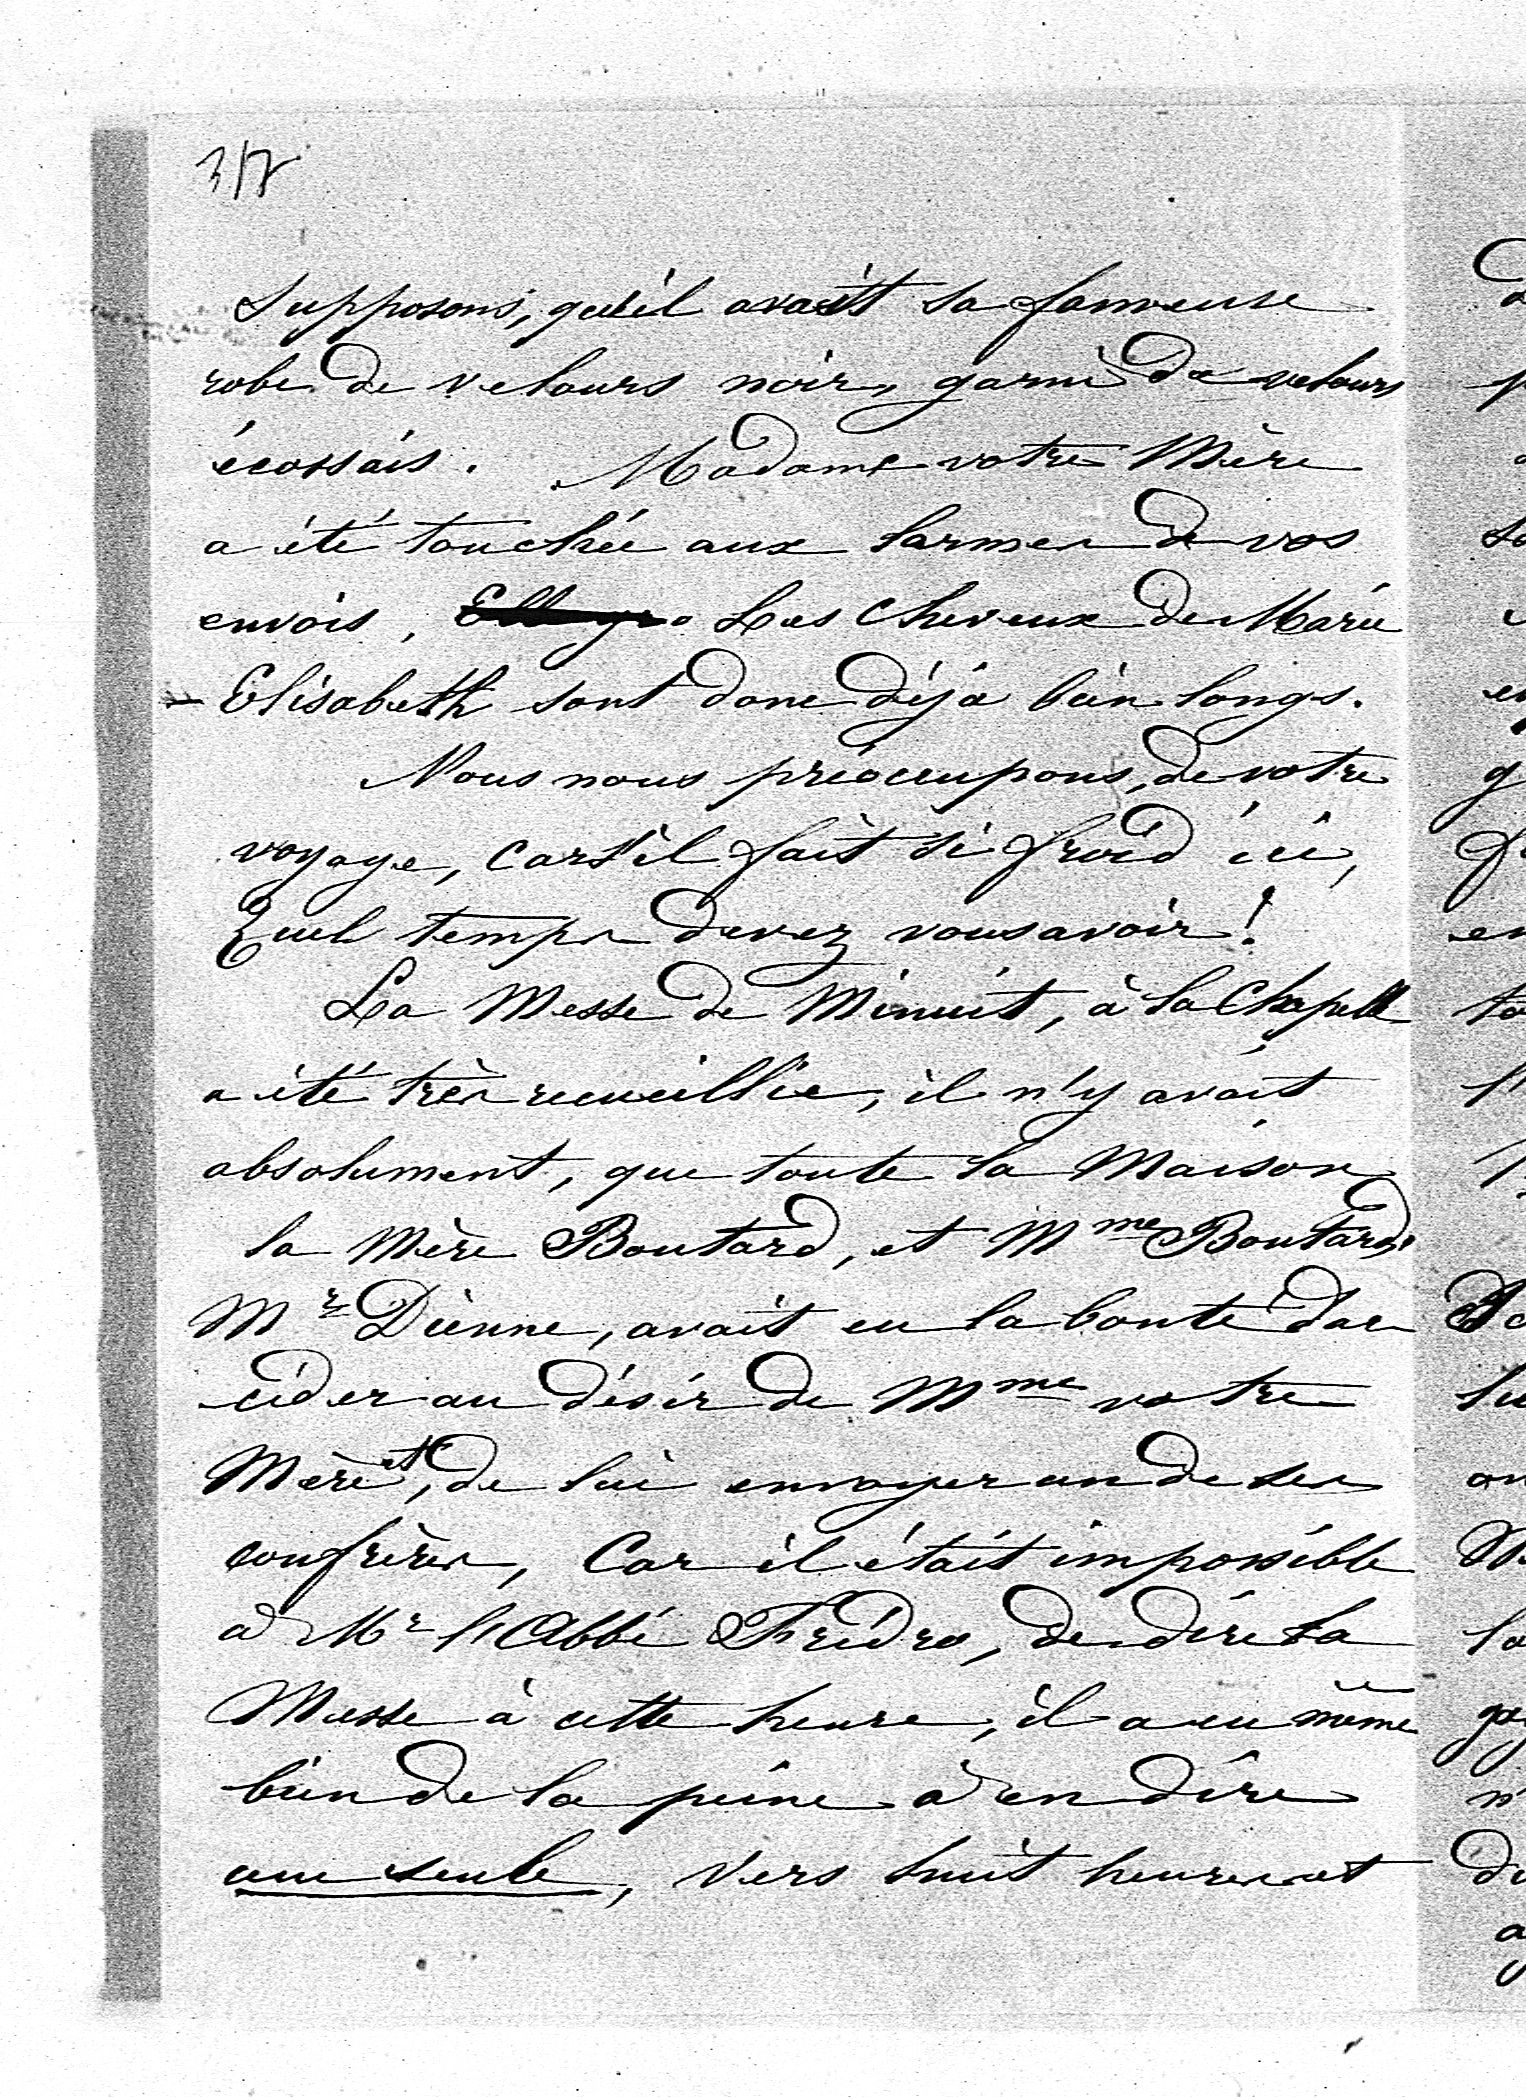 3/7
Supposons, qu'il avait sa fameuse
robe de velours noir, garni de velours
écossais. Madame votre Mère
a été touchée aux larmes de vos
envois, Les cheveux de Marie
- Elisabeth sont donc déjà bien longs.
Nous nous préoccupons, de votre
voyage, car s'il fait si froid ici,
Quel temps devez vous avoir!
La Messe de Minuit, à la Chapelle
a été très recueillie, il n'y avait
absolument, que toute la Maison
la Mère Boutard, et Mme Boutard.
Mr Dienne, avait eu la bonté d'ac
céder au désir de Mme votre
Mère et, de lui envoyer un de ses
confrères, Car il était impossible
à Mr l'Abbé de dire la
Messe à cette heure, il a eu même
bien de la peine à en dire
une seule, vers huit heures et